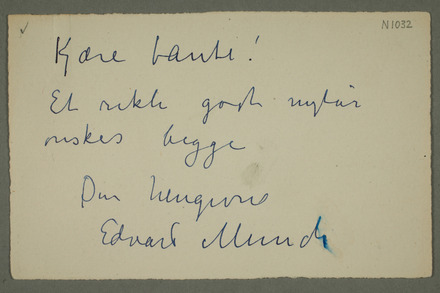 N1032
Kjære tante!
Et rikti godt nytår
ønskes begge
Din hengivne
Edvard Munch